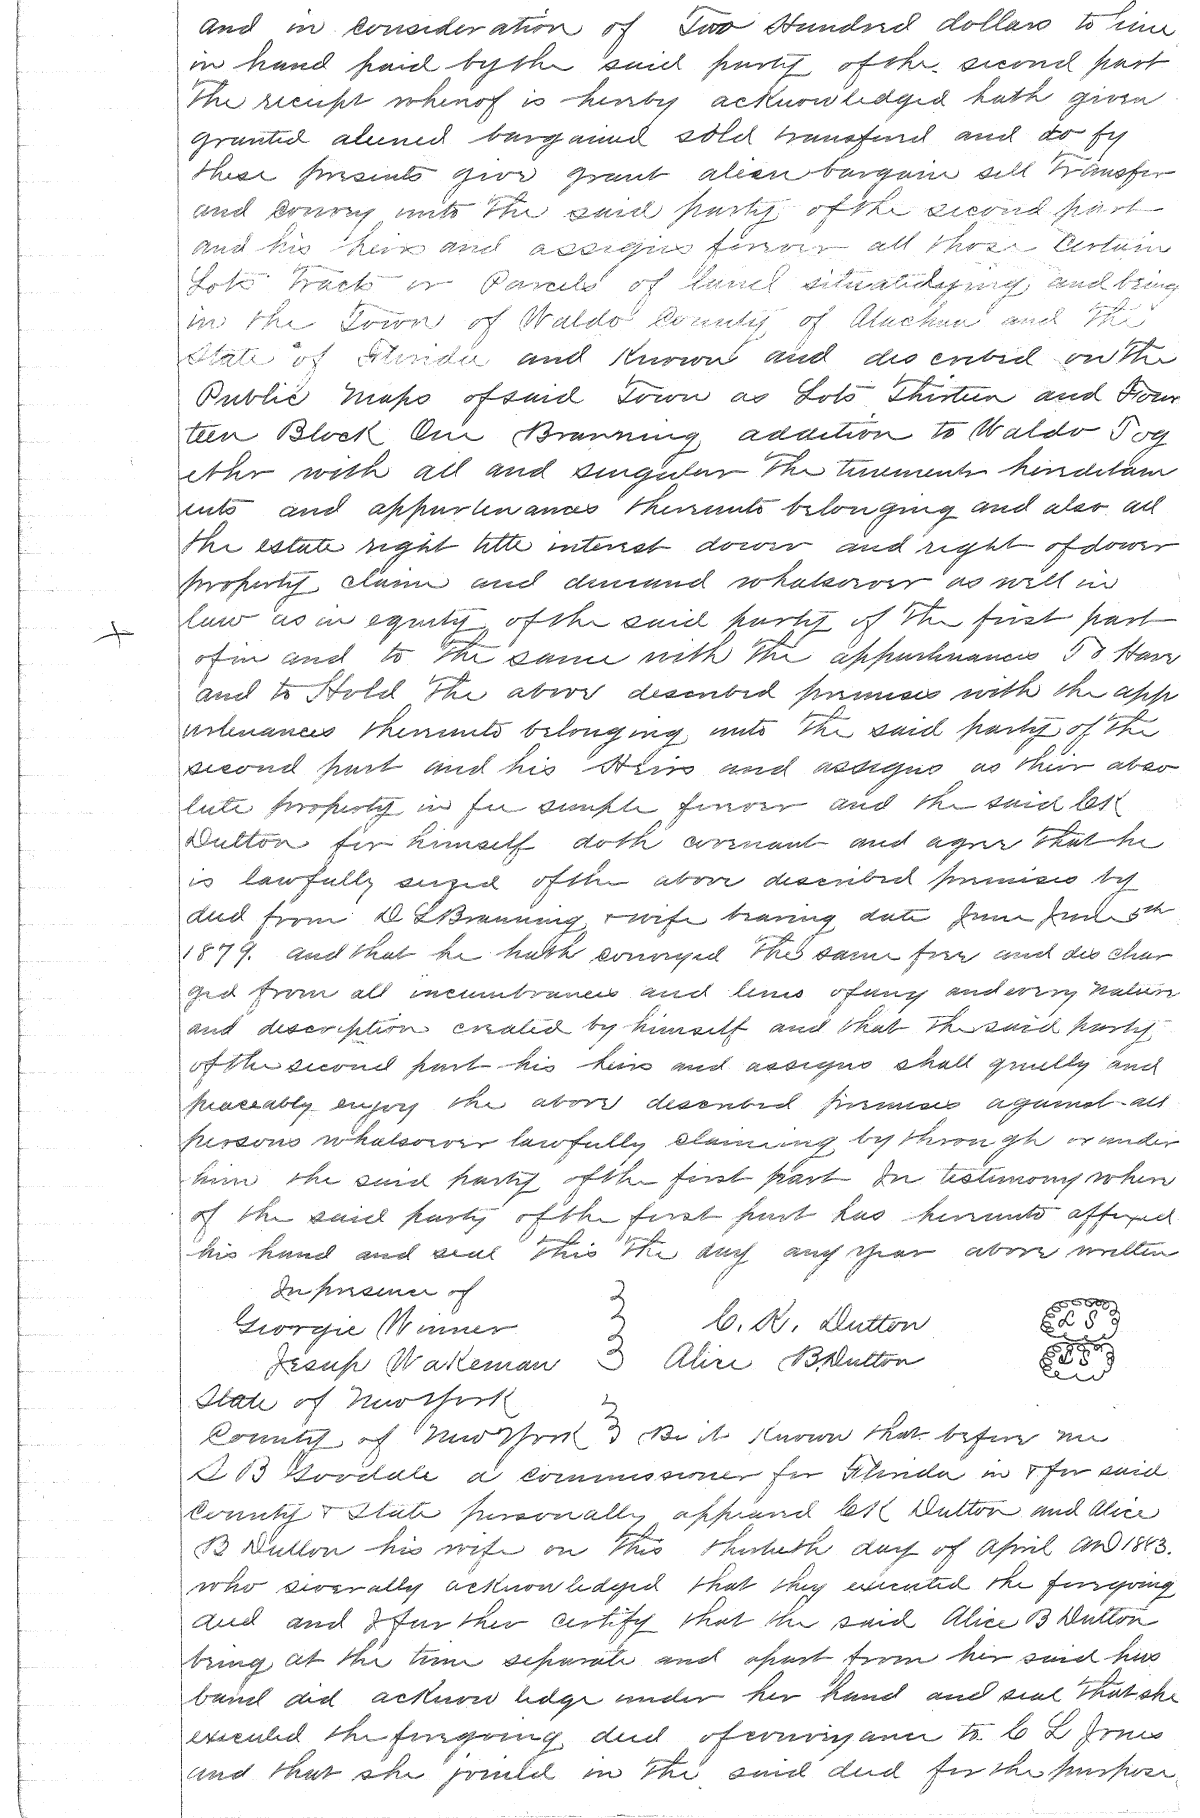 and in consideration of Two Hundred dollars to him
in hand paid by the said party of the second part
the receipt whereof is hereby acknowledged hath given
granted aliened bargained sold transferd and do by
these presents give grant alien bargain sell Transfer
and Convey unto the said party of the second part
and his heirs and assigns forever all those Certain
Lots Tracts or Parcels of land situated lying and being
in the Town of Waldo County of Alachua and the
State of Florida and Known and described on the
Public Maps of said Town as Lots Thirteen and Four
teen Block One Branning addition to Waldo Tog
ether with all and singular the tenements heriditam
ents and appurtenances thereunto belonging and also all
the estate right title interest dower and right of dower
property claim and demand whatsoever as well in
law as in equity of the said party of the first part
of in and to the same with the appurtinances To Have
and to Hold the above described premises with the app
urtenances thereunto belonging unto the said party of the
second part and his Heirs and assigns as their abso
lute property in fee simple forever and the said CK
Dutton for himself doth covenant and agree that he
is lawfully seized of the above described premises by
deed from D L Branning & wife bearing date June June 5th
1879. and that he hath conveyed the same free and dischar
ged from all incumbrances and liens of any and every nature
and description created by himself and that the said party
of the second part his heirs and assigns shall quietly and
peaceably enjoy the above described premises against all
persons whatsoever lawfully claiming by through or under
him the said party of the first part In testimony where
of the said party of the first part has hereunto affixed
his hand and seal this the day any year above written
In presence of
Georgie Winner C. K. Dutton L S
Jesup Wakeman Alice B. Dutton L S
State of New York
County of New York Be it Known that before me
S B Goodale a commissioner for Florida in & for said
County & State personally appeared CK Dutton and Alice
B Dutton his wife on this thirtieth day of April AD 1883.
who severally acknowledged that they executed the foregoing
deed and I further certify that the said Alice B Dutton
being at the time separate and apart from her said hus
band did acknowledge under her hand and seal that she
executed the foregoing deed of conveyance to C L Jones
and that she joined in the said deed for the purpose